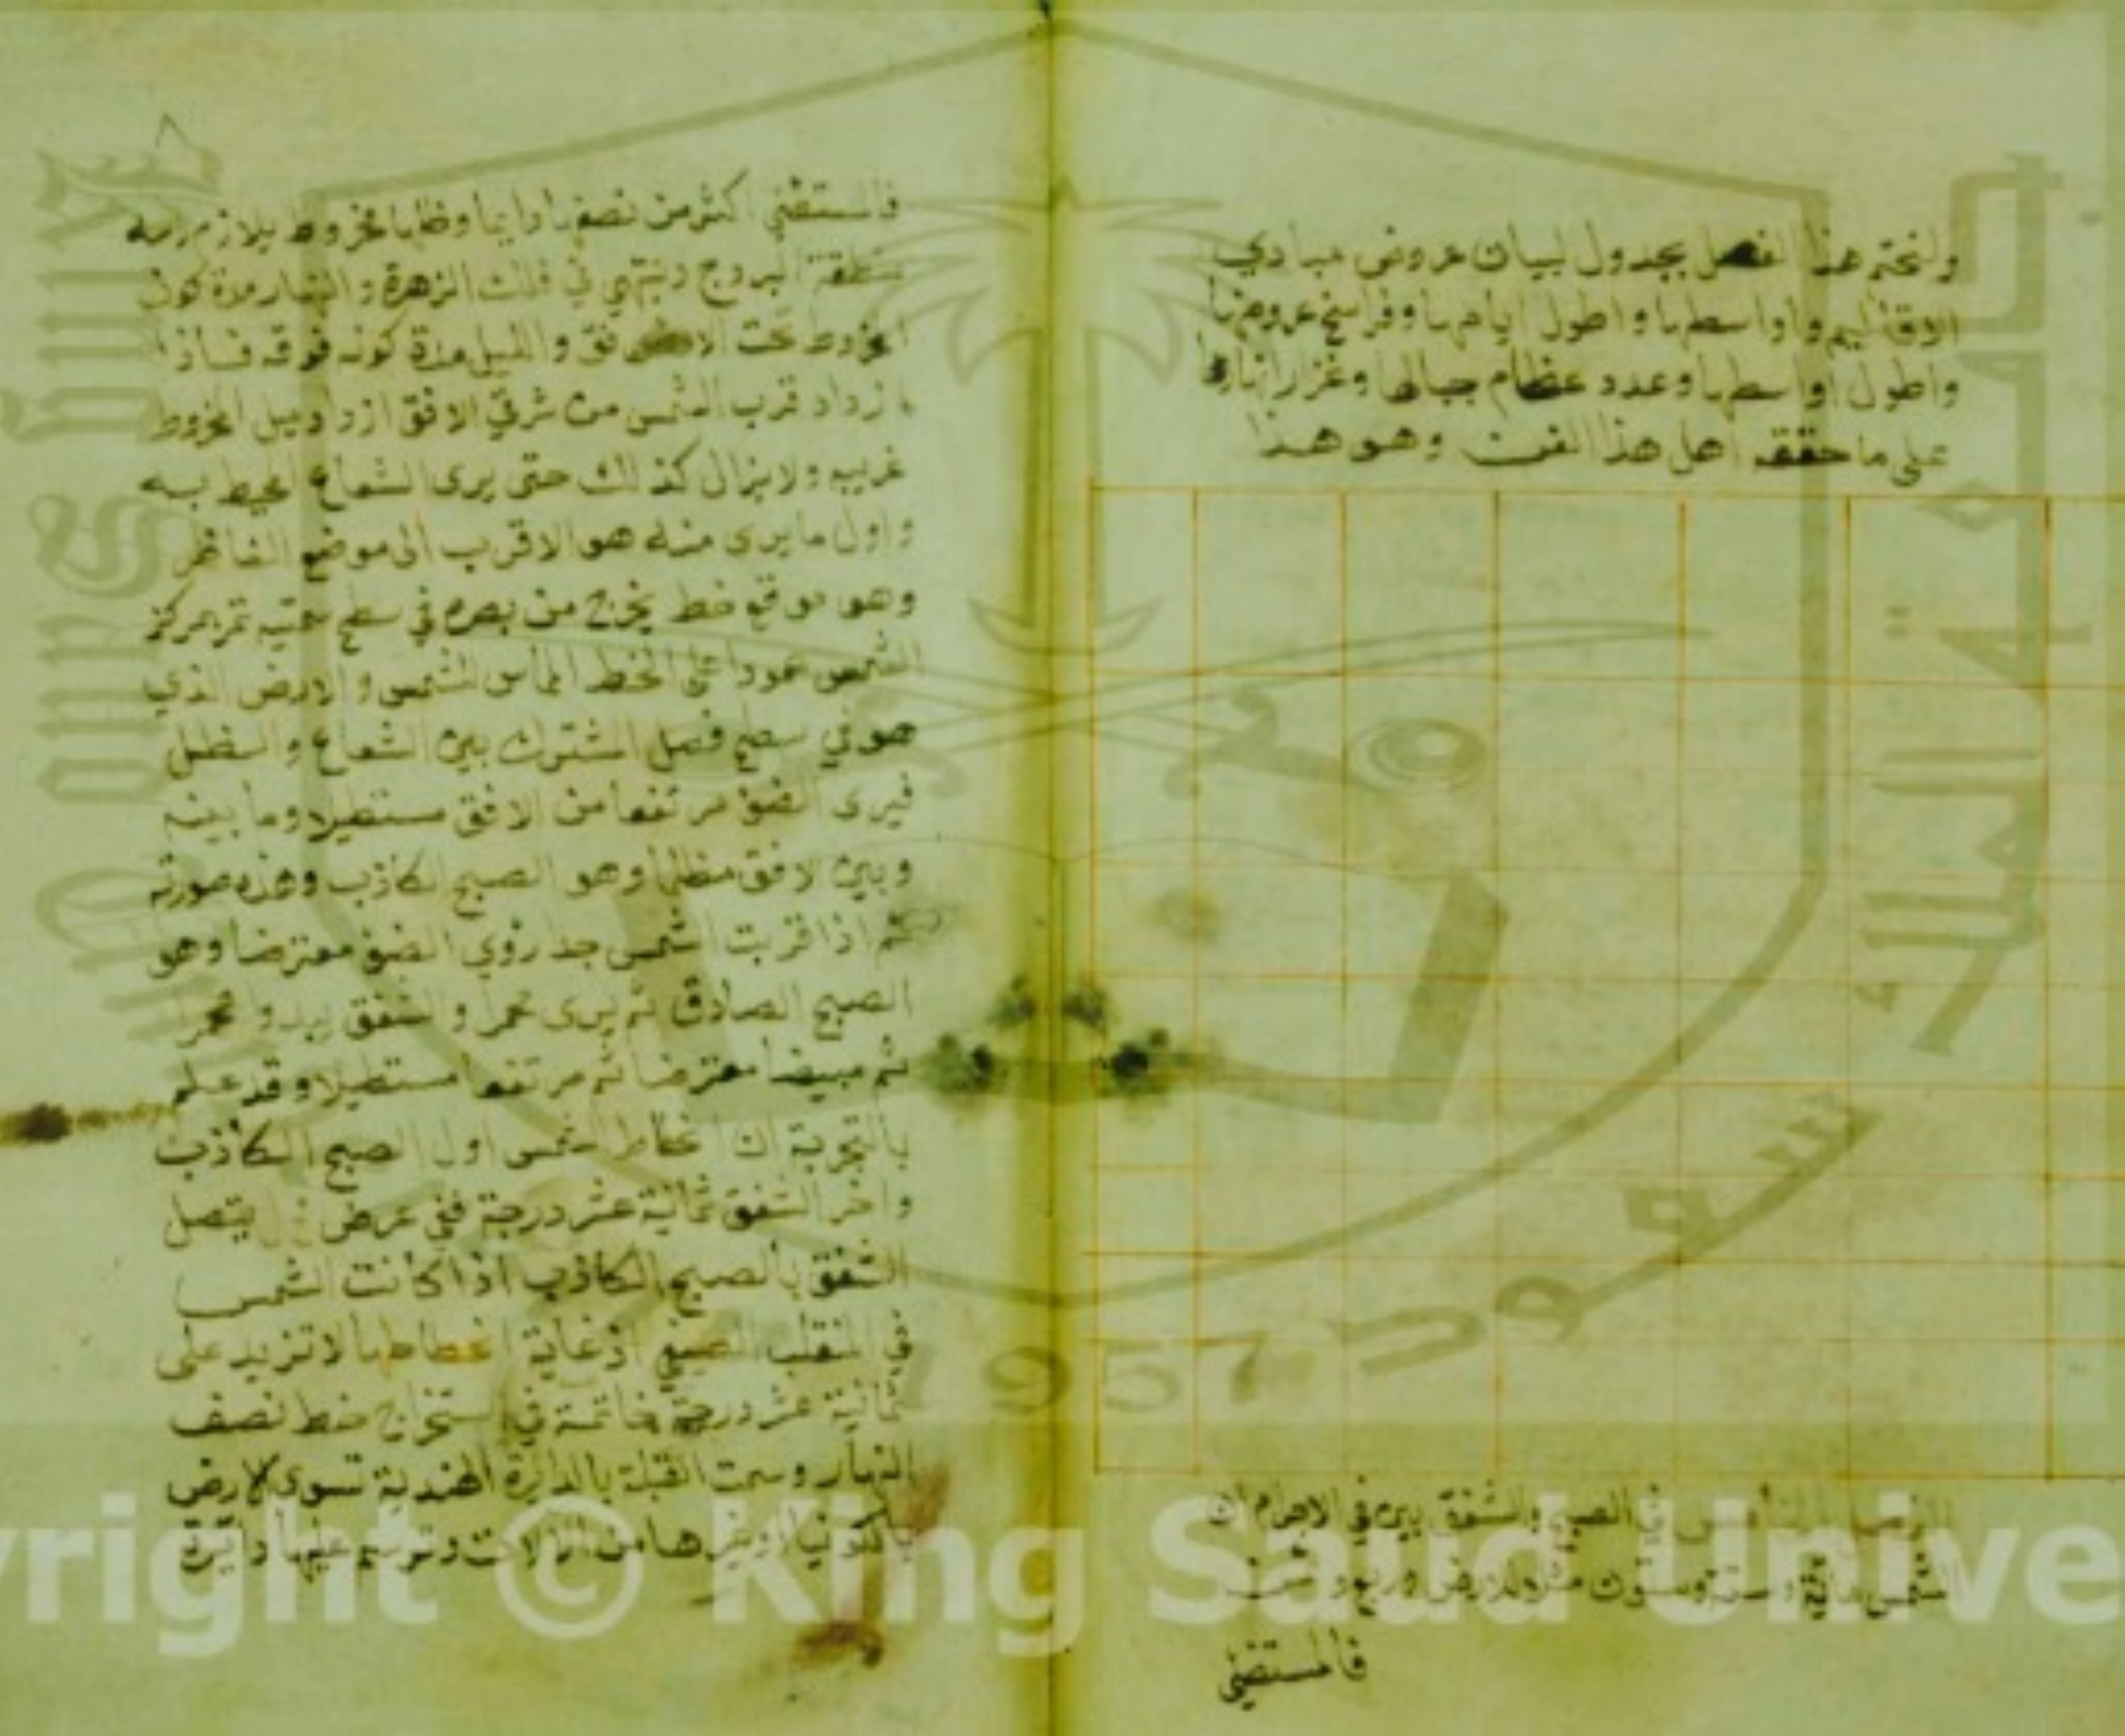 ولنختم هذا الفصل بجدول لبيان عروض مبادي
الاقاليم واواسطها واطول ايامها وفراسخ عروضها
واطول اواسطها وعدد عظام جبالها وغزر انهارها
على ما حققه اهل هذا الفن وهو هذا
في الصبح والشفق الاجرام ان
الشمس مائة وستة وستون مثلا للارض وربع وثمن
فالمستضئ
فالمستضئ اكثر من نصفها دايما وظلها مخروط يلازم راسه
منطقة البروج وينتهي في فلك الزهرة والنهار مدة كون
المخروط تحت الافق والليل مدة كونه فوقه فاذا
ازداد قرب الشمس من شرقي الافق ازداد ميل المخروط
غربيه ولا يزال كذالك حتى يرى الشعاع المحيط به
واول ما يرى منه هو الاقرب الى موضع الناظر
وهو موقع خط يخرج من بصره في سطح سمتيه تمر بمركز
الشمس عمودا على الخط المماس للشمس والارض الذي
هو في سطح فصل المشترك بين الشعاع والظل
فيرى الضؤ مرتفعا من الافق مستطيلا وما بينه
وبين الافق مظلما وهو الصبح الكاذب وهذه صورته
ثم اذا قربت الشمس جدا رؤي الضؤ معترضا وهو
الصبح الصادق ثم يرى محمرا والشفق يبدو محمرا
ثم مبيضا معترضا ثم مرتفعا مستطيلا وقد علم
بالتجربة ان انحطاط الشمس اول الصبح الكاذب
واخر الشفق ثمانية عشر درجة ففي عرض يتصل
الشفق بالصبح الكاذب اذا كانت الشمس
في المنقلب الصيفي اذ غاية انحطاطها لا تزيد على
ثمانية عشر درجة خاتمة في استخراج خط نصف
النهار وسمت القبلة بالدايرة الهندية تسوى الارض
بالكونيا او غيرها من الالات وترسم عليها دايرة
جامعة الملك سعود
1957
Copyright © King Saud University